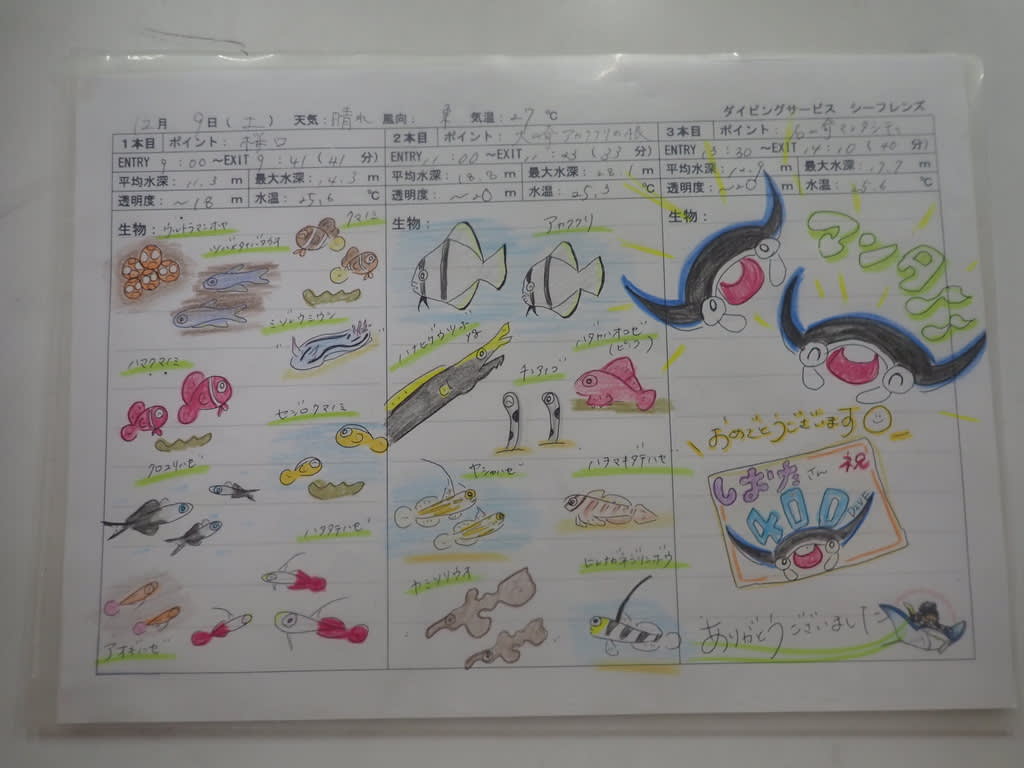 ダイビングサービス シーフレンズ
12月 9日(土) 天気:晴れ 風向: 東 気温:27℃
1本目 ポイント: 様口
ENTRY 9:00~EXIT 9:41(41分)
平均水深: 11.3 m 最大水深: 14.3 m
透明度: ~18 m 水温: 25.6 ℃
生物: ウルトラマンホヤ
クマノミ
ミゾレウミウシ
ハマクマノミ
セジロクマノミ
クロユリハゼ
ハタタテハゼ
アオギハゼ
2本目 ポイント: 大崎アカククリの根
ENTRY 11:00~EXIT 11:33(33分)
平均水深: 18.8 m 最大水深: 28.1 m
透明度: ~20 m 水温: 25.3 ℃
生物: アカククリ
ハナヒゲウツボ
チンアナゴ
ハダカハオコゼ
(ピンク)
ヤシャハゼ
ハチマキダテハゼ
カミソリウオ
ヒレナガネジリンボウ
3本目 ポイント: 石崎マンタシティ
ENTRY 13:30~EXIT 14:10(40分)
平均水深: 12.9 m 最大水深: 17.7 m
透明度: ~20 m 水温: 25.6 ℃
生物:
マンタ
おめでとうございます
祝
さん
400
DIVE
ありがとうございました